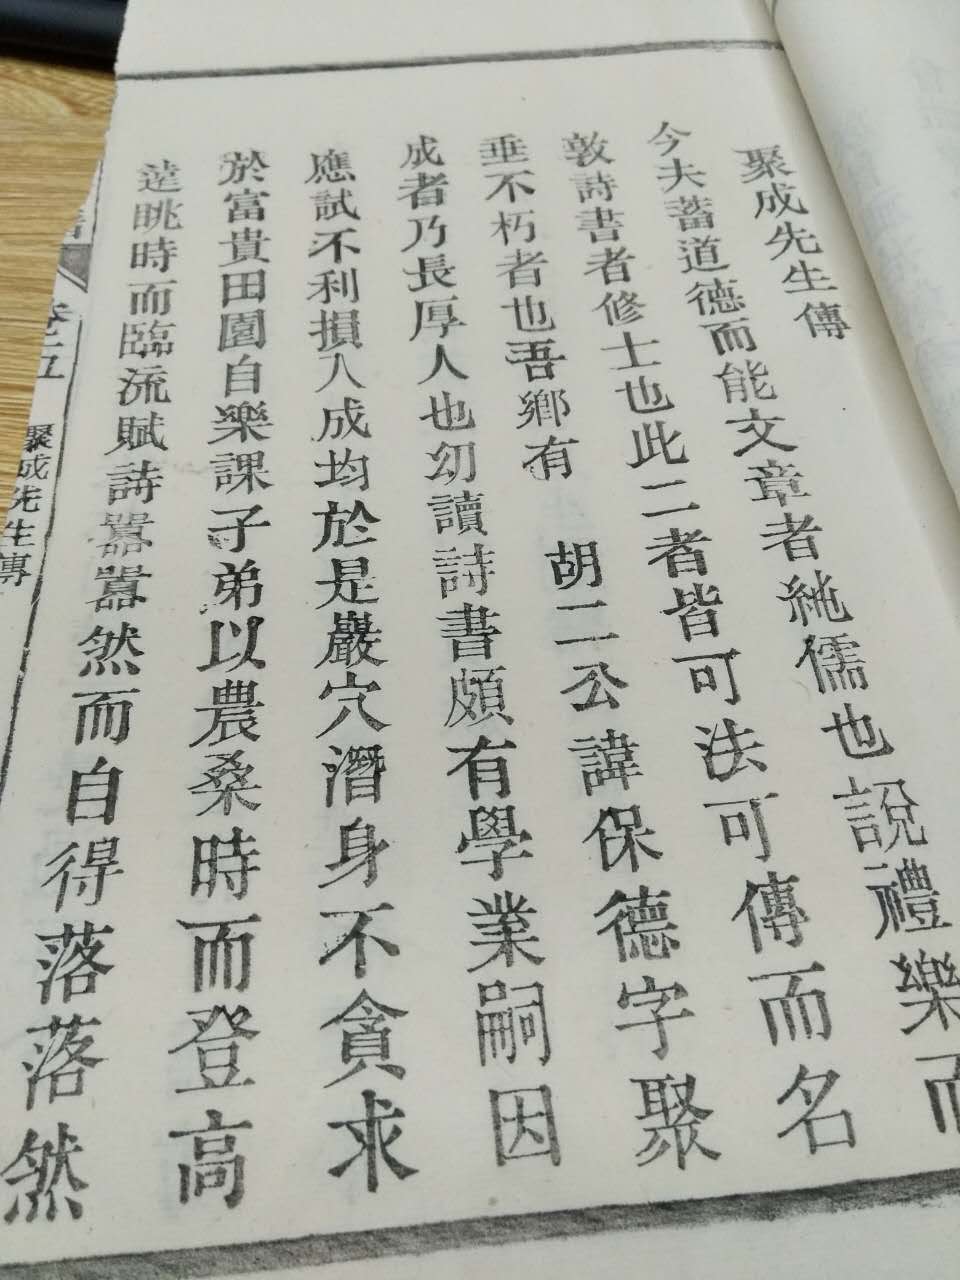 聚成先生傳
今夫蓄道德而能文章者純儒也說禮樂而
敦詩書者修士也此二者皆可法可傳而名
垂不朽者也吾鄉有　胡二公諱保德字聚
成者乃長厚人也幼讀詩書頗有學業嗣因
應試不利損入成均於是巖穴潛身不貪求
於富貴田園自樂課子弟以農桑時而登高
遠眺時而臨流賦詩囂囂然而自得落落然
卷二五　聚成先生傳